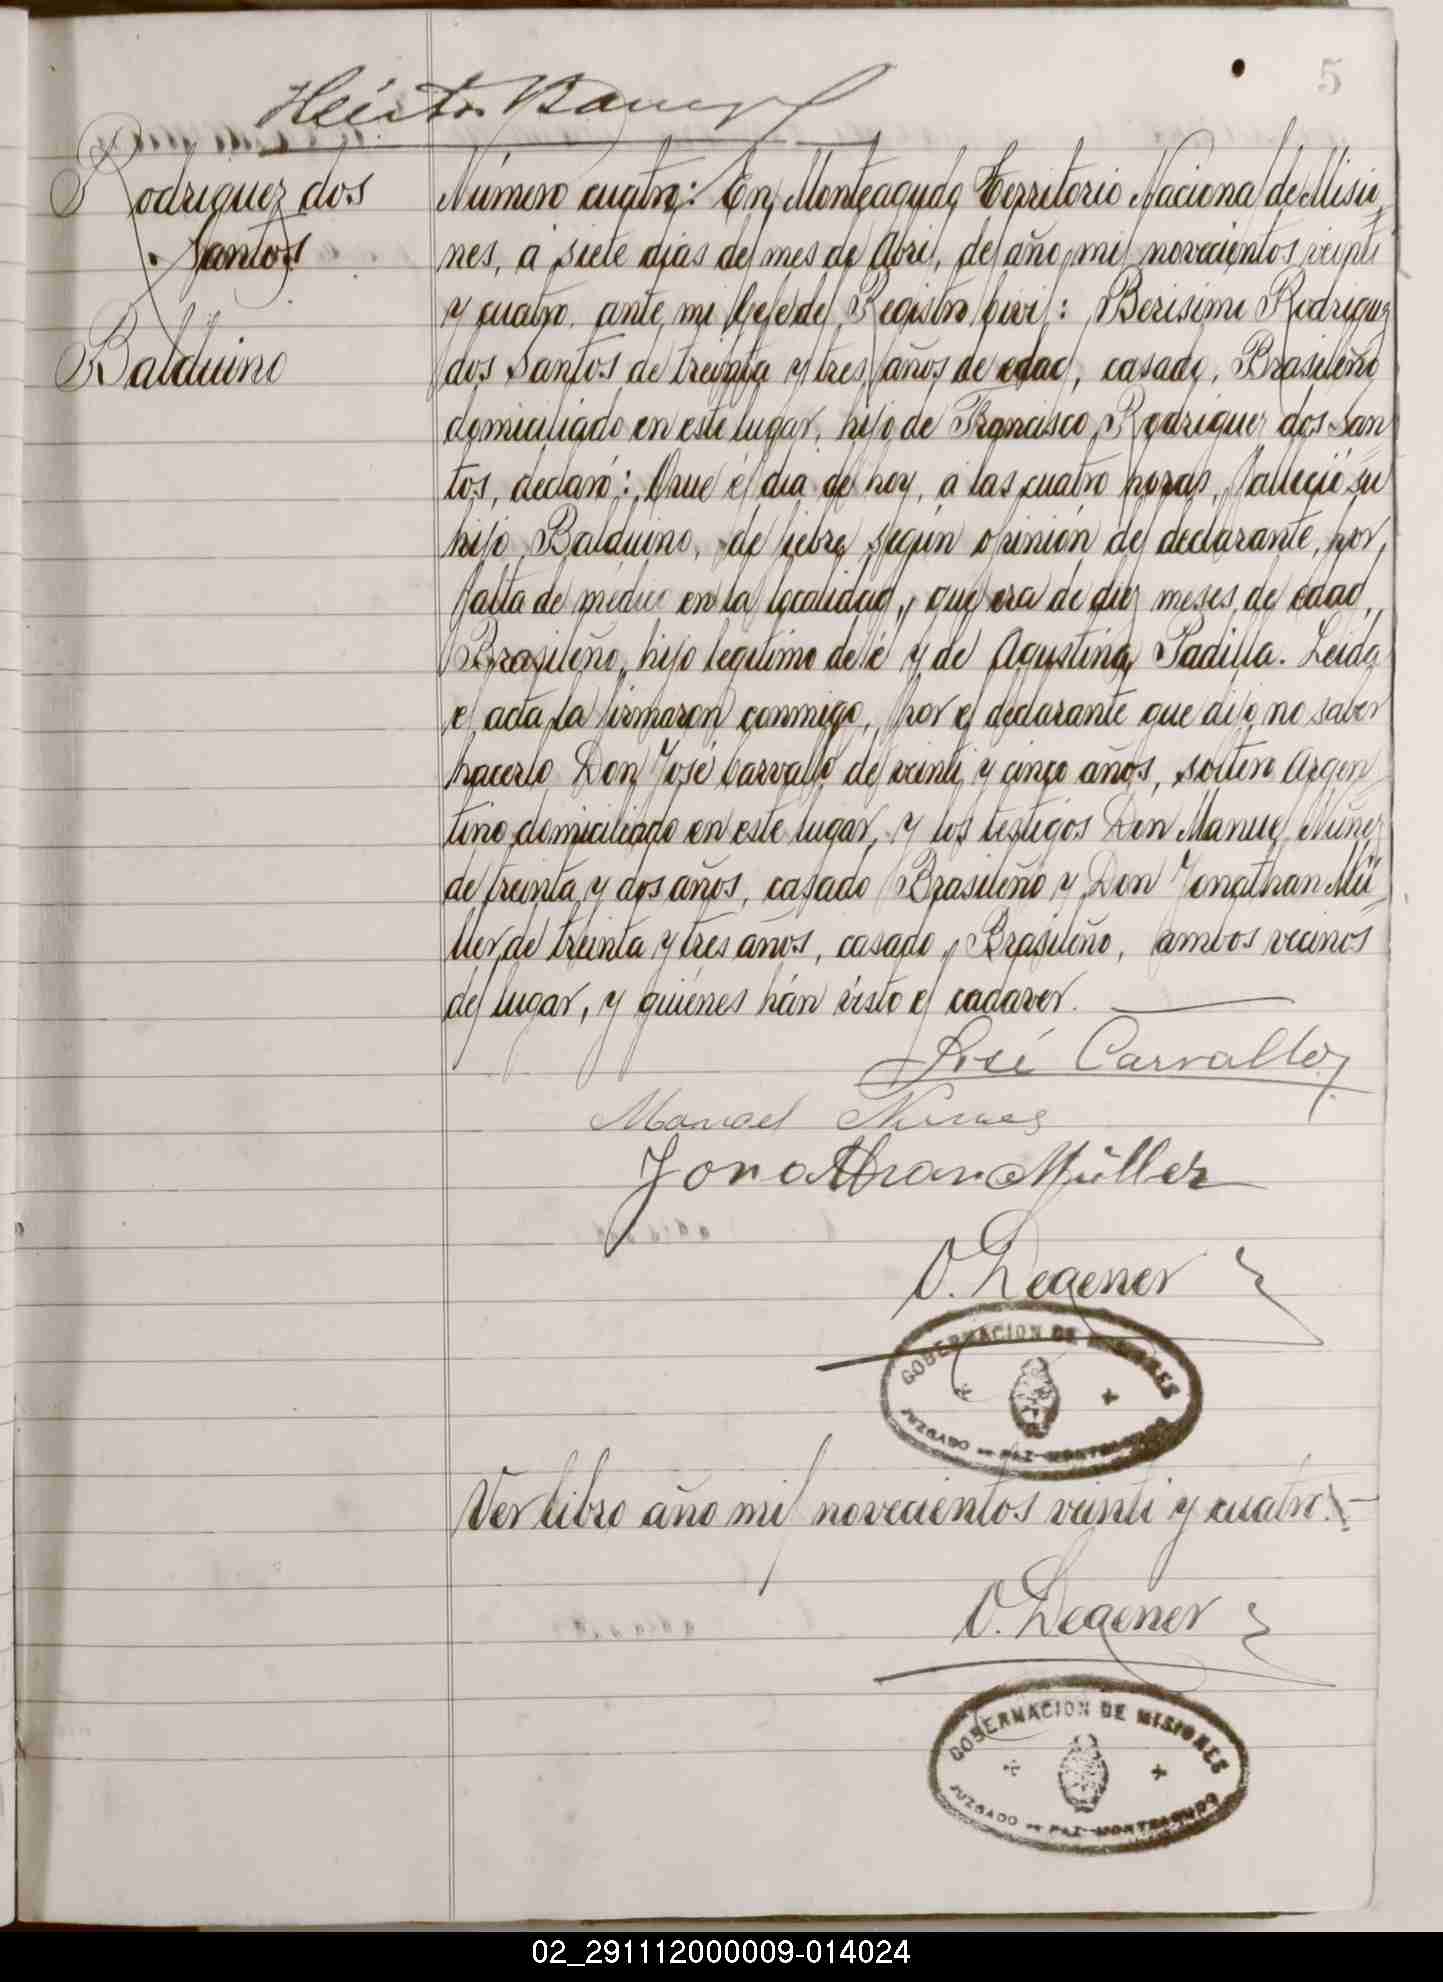 5
Héctor
Rodriguez dos
Santos
Balduino
Número cuatro: En Monteagudo Territorio Nacional de Misio
nes, á siete dias del mes de Abril, del año mil novecientos veinti
y cuatro, ante mi Jefe del Registro Civil: Berisimo Rodriguez
dos Santos de treinta y tres años de edad, casado, Brasileño
domiciliado en este lugar, hijo de Francisco Rodriguez dos San
tos, declaró: Que el dia de hoy, a las cuatro horas, falleció su
hijo Balduino, de fiebre, según opinión del declarante, por
falta de médico en la localidad, que era de diez meses de edad,
Brasileño, hijo legitimo de él y de Agustina Padilla. Leida
el acta la firmaron conmigo, por el declarante que dijo no saber
hacerlo Don José Carvallo de veinti y cinco años, soltero Argen
tino domiciliado en este lugar, y los testigos Don Manuel Nuñez
de treinta y dos años, casado Brasileño y Don Jonathan Mü
ller de treinta y tres años, casado, Brasileño, ambos vecinos
del lugar, y quiénes hán visto el cadaver.
José Carvallo
Manoel Nunes
Jonathan Müller
O. Degener
GOBERNACION DE MISIONES
JUZGADO DE PAZ-MONTEAGUDO
Ver libro año mil novecientos veinti y cuatro.
O. Degener
GOBERNACION DE MISIONES
JUZGADO DE PAZ-MONTEAGUDO
02_291112000009-014024